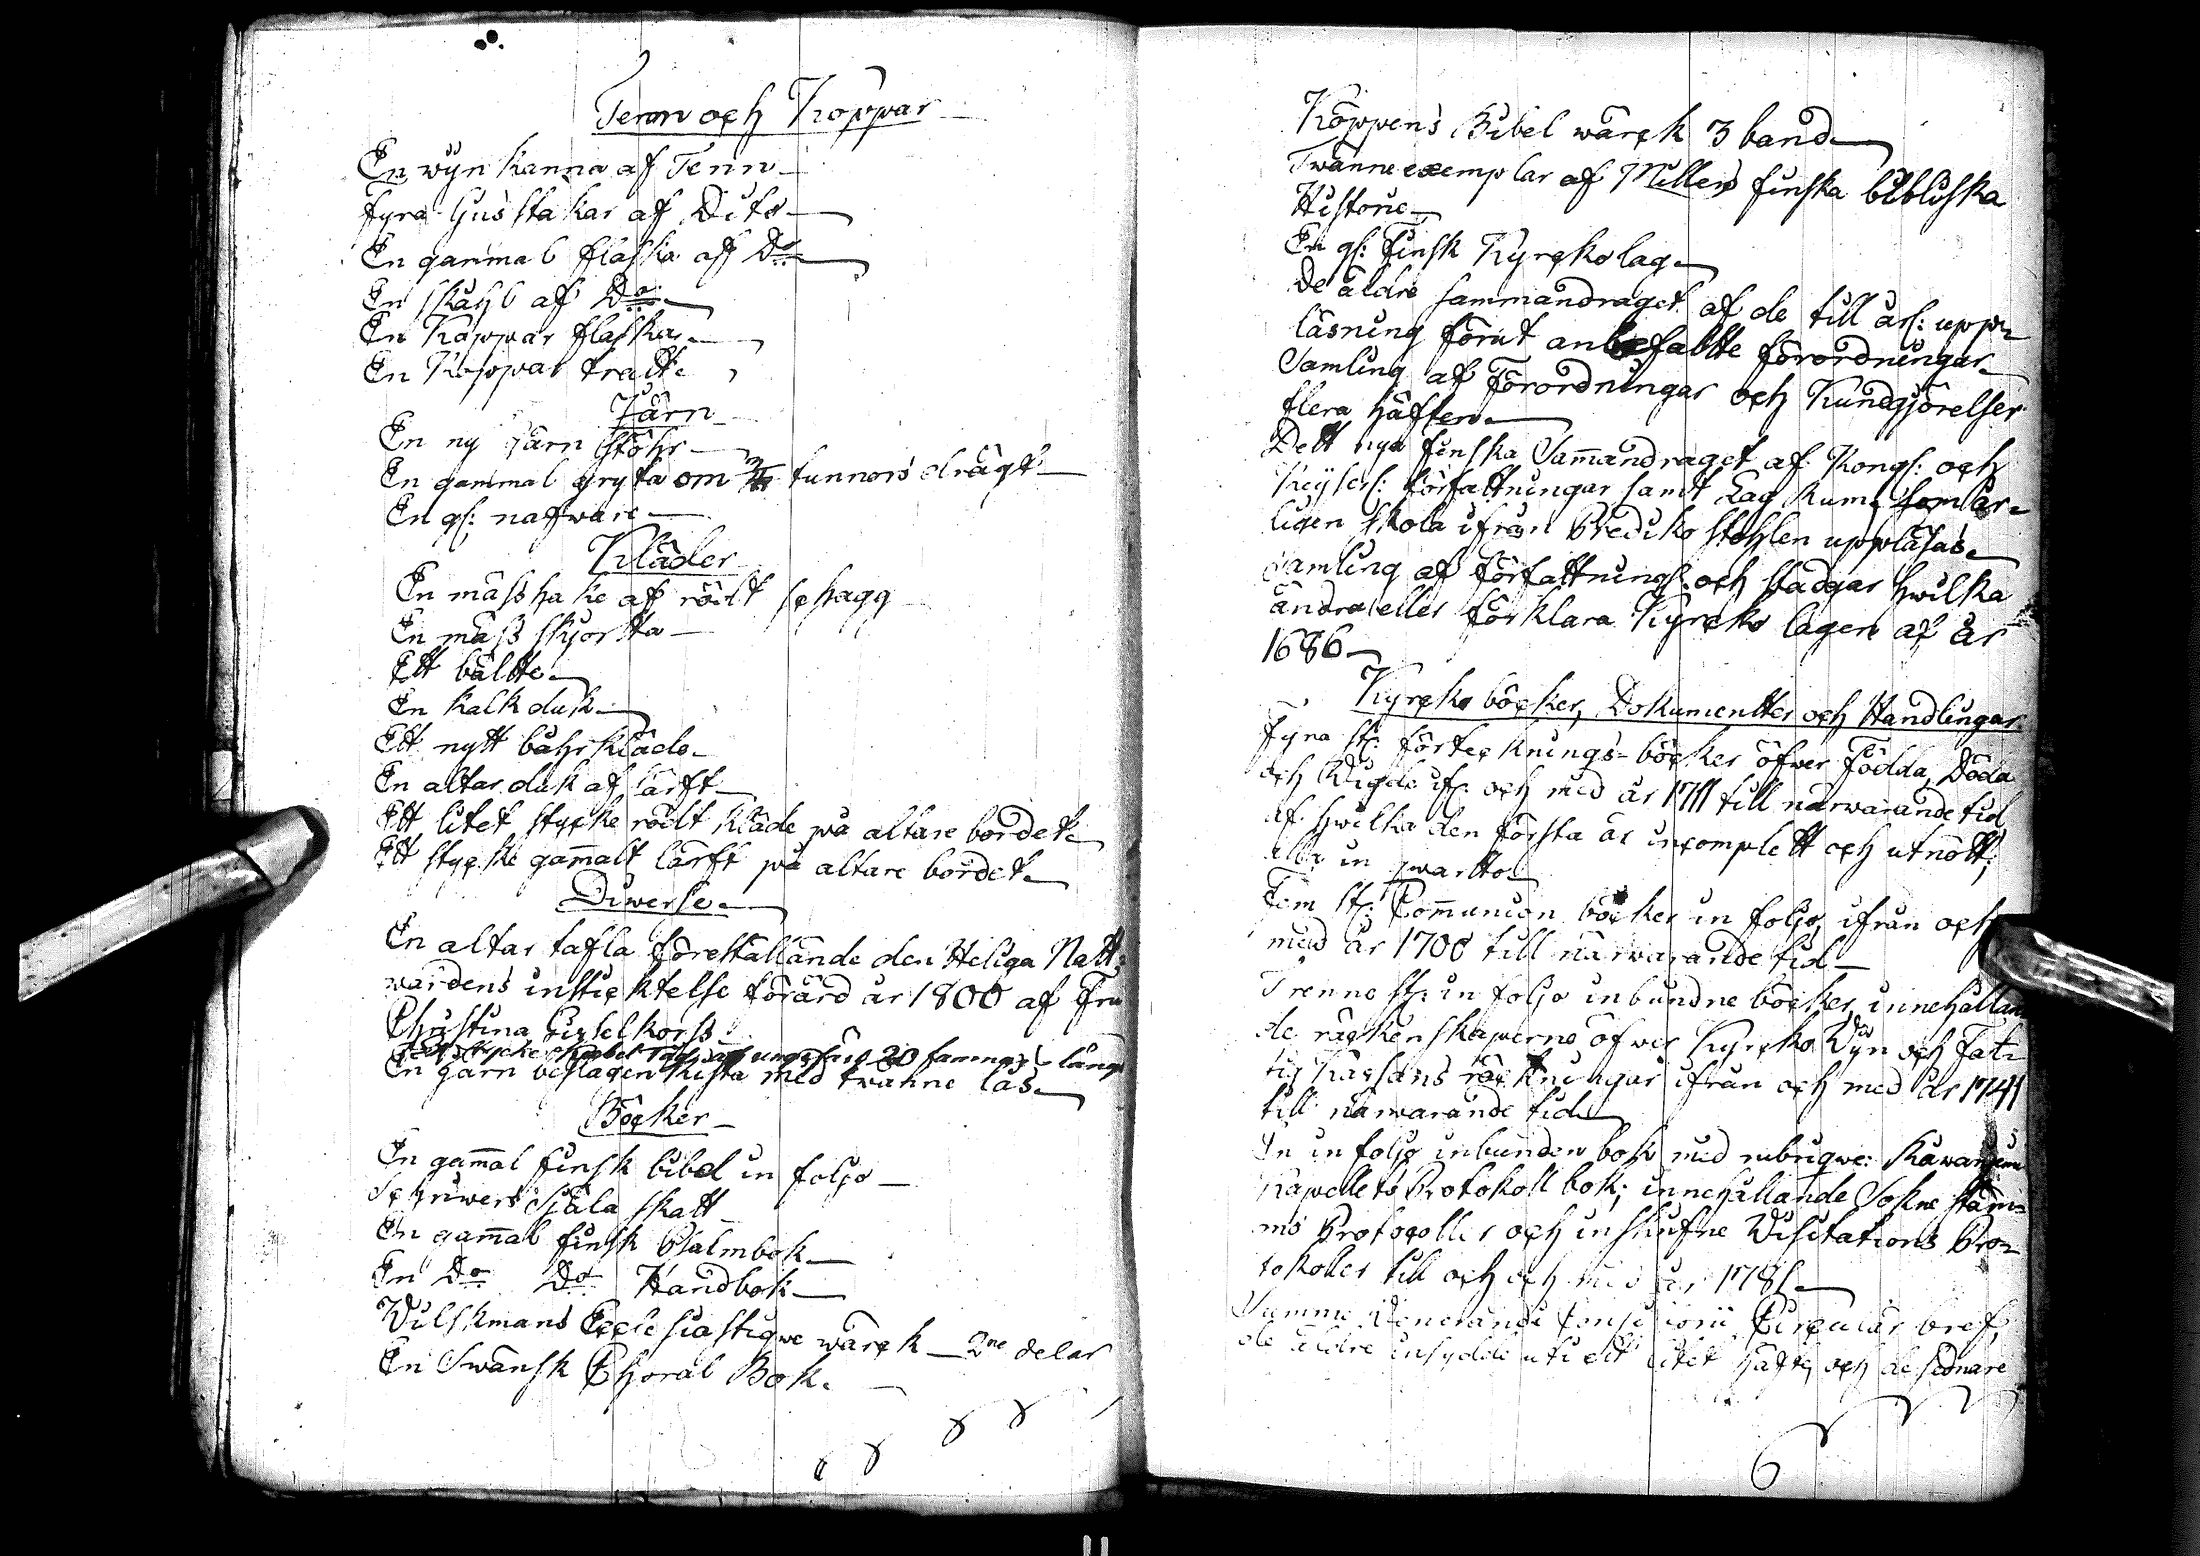 Tenn och Koppar
En wyn kanna af Tenn
fyra ljus stakar af Dito
En gammal flaska af Do
En skåhl af Do
En Koppar flaska
En Koppar tratt
Järn
En ny järn stöhr
En gammal gryta om tunnors drägt
En gl: nafware
Kläder
En mässhake af rödt schagg
En mäss skjortta
Ett bältte
En kalk duk
Ett nytt båhrkläde
En altar duk af lärft
Ett litet stycke rödt kläde på altare bordet
Ett stycke gamalt lärft på altare bordet
Diwerse
En altar tafla föreställande den Heliga Natt-
wardens insticktelse förärd år 1800 af Fru
Christina
ungefär 20 famnar lång
En järn beslagen kista med twänne lås
Böcker
En gamal finsk bibel in foljo
Schriwers Själa skatt
En gamal finsk Psalmbok
En Do Do Handbok
Wilskmans Ecclesiastiqve wärck 2ne delar
En Swänsk Choral Bok.
Köppens Bibel wärck 3 band
Twänne exemplar af Möllers finska bibliska
Historie
En gl: Finsk Kyrckolag
De äldre sammandraget af de till årl: upp-
läsning förut anbefaltte förordningar
Samling af Förordningar och Kundgjörelser
flera häften
Dett nya finska Samandraget af Kongl: och
Keyserl: författningar samt Lag Rum, som år-
ligen skola ifrån Predikostohlen uppläsas
Samling af författningr och stadgar hwilka
ändra eller förklara Kyrcko lagen af år
1686
Kyrcko böcker, Dokumentter och Handlingar
Fyra st: förtecknings-böcker öfwer Födda, Döda
och Wigde if: och med år 1711 till närwarande tid
af hwilka den första är incomplett och utnött,
alla in qwartto
Fem st: Communion böcker in foljo, ifrån och
med år 1700 till närwarande tid
Trenne st: in foljo inbundne böcker, innehållan
de räckenskaperne öfwer Kyrcko, Wyn och Fat-
tig Kassans räckningar ifrån och med år 1741
till närwarande tid
En in foljo inbunden bok med rubriqve:
Kapellets Protokoll bok; innehållande Sokne stäm-
mo Protocoller och inskrifne Visitations Pro-
tokoller till och och med år 1781
Summe Venerandi Consistorii Circulär bref,
de äldre insydde uti ett litet häfte, och de sednare
6
11